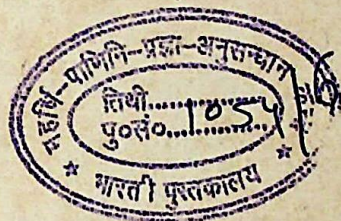 महर्षि-पाणिनि-प्रज्ञा-अनुसन्धान
तिथी..............
पु०सं०.....1054
* भारती पुस्तकालय *